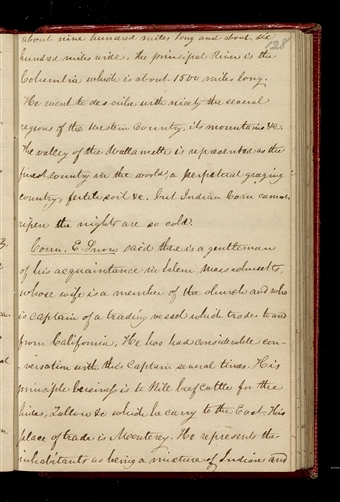 128
about nine hundred miles long and about six
hundred miles wide. the principal River is the
Columbia which is about 1500 miles long.
He went to describe with nicety the several
regions of the western Country, its mountains &c.
The valley of the Wallamette is represented as the
finest country in the world, a perpetual grazing
country, fertile soil &c. but Indian Corn cannot
ripen the nights are so cold.
Coun. E. Snow said there is a gentleman
of his acquaintance in Salem, Massachusetts,
whose wife is a member of the church and who
is captain of a trading vessel which trades to and
from California. He has had considerable con-
versation with this Captain several times. His
principle business is to kill beef cattle for the
hides, Tallow &c which he carry to the East. His
place of trade is Monterey. He represents the
inhabitants as being a mixture of Indians and